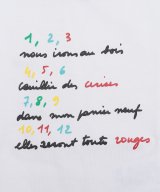 1, 2, 3
nous irons au bois
4, 5, 6
cueillir des cerises
7, 8, 9
dans mon panier neuf
10, 11, 12
elles seront toute rouges